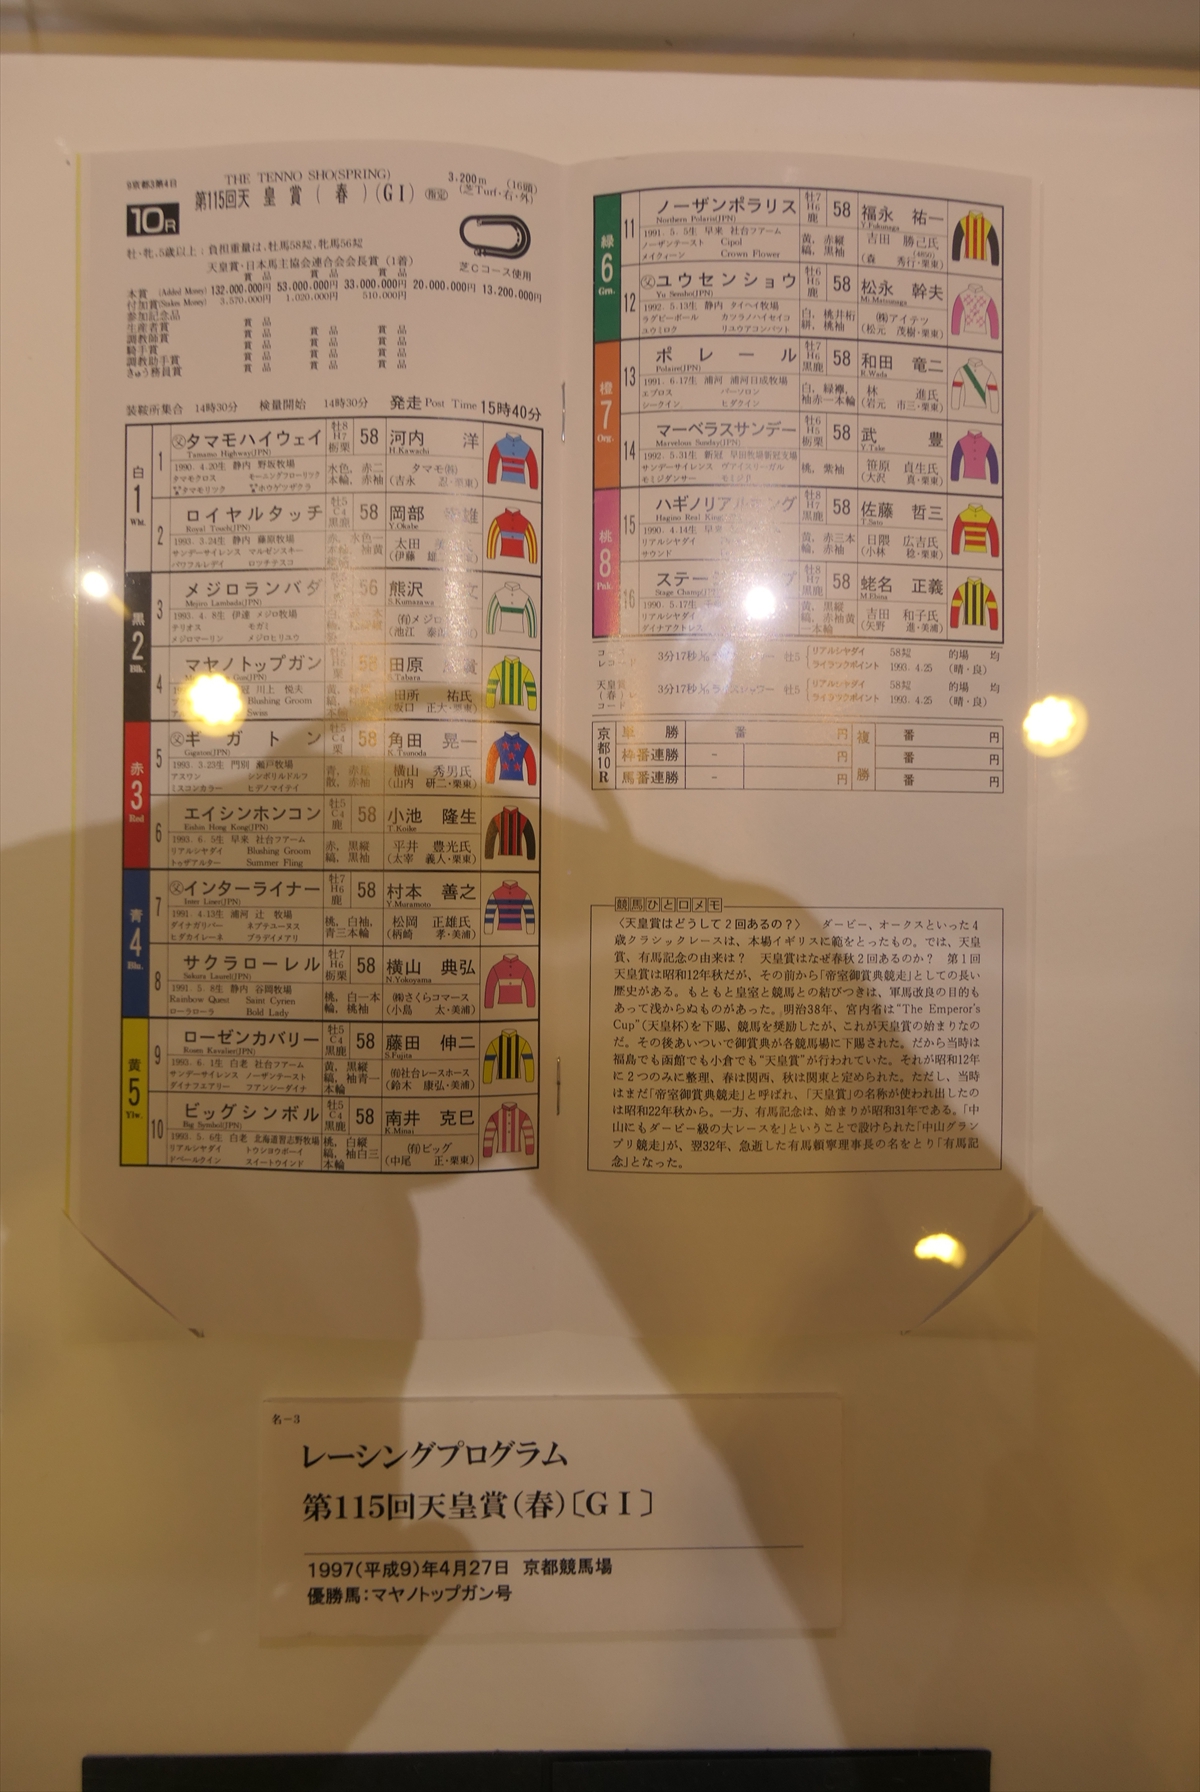 9京都3第4日
THE TENNO SHO(SPRING)
第115回天皇賞(春)(GI)
(指定)
3,200m (16頭)
(芝Turf・右・外)
10R
芝Cコース使用
牡・牝、5歳以上：負担重量は、牡馬58㌔、牝馬56㌔
天皇賞・日本馬主協会連合会会長賞(1着)
賞品 賞品 賞品
本賞(Added Money) 132,000,000円 53,000,000円 33,000,000円 20,000,000円 13,200,000円
付加賞(Stakes Money) 3,570,000円 1,020,000円 510,000円
参加記念品
生産者賞 賞品
調教師賞 賞品 賞品 賞品
騎手賞 賞品 賞品 賞品
調教助手賞 賞品 賞品 賞品
きゅう務員賞 賞品 賞品 賞品
装鞍所集合 14時30分 検量開始 14時30分 発走 Post Time 15時40分
白 1 Wht.
1 父タマモハイウェイ 牡8 H7 栃栗 58 河内 洋
Tamamo Highway(JPN) H.Kawachi
1990. 4.20生 静内 野坂牧場 水色、赤二本輪、赤袖 タマモ㈱
タマモクロス モーニングフローリック (吉永 忍・栗東)
タマモリツク ホウゲツザクラ
2 ロイヤルタッチ 牡5 C4 黒鹿 58 岡部
Royal Touch(JPN) Y.Okabe
1993. 3.24生 静内 藤原牧場 太田
サンデーサイレンス マルゼンスキー
パワフルレデイ ロツチテスコ
黒 2 Blk.
3 メジロランバダ 56 熊沢
Mejiro Lambada(JPN) S.Kumazawa
1993. 4. 8生 伊達 メジロ牧場 ㈲メジロ
テリオス モガミ
メジロマーリン メジロヒリユウ
4 マヤノトップガン 58 田原
S.Tabara
川上 悦夫 田所 祐氏
Blushing Groom (坂口 正大・栗東)
Swiss
赤 3 Red
5 父ギガトン 牡5 C4 栗 58 角田 晃一
Gigaton(JPN) K.Tsunoda
1993. 3.23生 門別 瀬戸牧場 横山 秀男氏
アスワン シンボリルドルフ (山内 研二・栗東)
ミスコンカラー ヒデノマイテイ
6 エイシンホンコン 牡5 C4 鹿 58 小池 隆生
Eishin Hong Kong(JPN) T.Koike
1993. 6. 5生 早来 社台フアーム 赤、黒縦縞、黒袖 平井 豊光氏
リアルシヤダイ Blushing Groom (太宰 義人・栗東)
トゥザアルター Summer Fling
青 4 Blu.
7 父インターライナー 牡7 H6 鹿 58 村本 善之
Inter Liner(JPN) Y.Muramoto
1991. 4.13生 浦河 辻 牧場 桃、白袖、青三本輪 松岡 正雄氏
ダイナガリバー ネプテユーヌス (柄崎 孝・美浦)
ヒダカイレーネ プラデイメアリ
8 サクラローレル 牡7 H6 栃栗 58 横山 典弘
Sakura Laurel(JPN) N.Yokoyama
1991. 5. 8生 静内 谷岡牧場 桃、白一本輪、桃袖 ㈱さくらコマース
Rainbow Quest Saint Cyrien (小島 太・美浦)
ローラローラ Bold Lady
黄 5 Ylw.
9 ローゼンカバリー 牡5 C4 黒鹿 58 藤田 伸二
Rosen Kavalier(JPN) S.Fujita
1993. 6. 1生 白老 社台フアーム 黄、黒縦縞、袖青一本輪 ㈲社台レースホース
サンデーサイレンス ノーザンテースト (鈴木 康弘・美浦)
ダイナフエアリー フアンシーダイナ
10 ビッグシンボル 牡5 C4 黒鹿 58 南井 克巳
Big Symbol(JPN) K.Minai
1993. 5. 6生 白老 北海道習志野牧場 桃、白縦縞、袖白三本輪 ㈲ビッグ
リアルシヤダイ トウシヨウボーイ (中尾 正・栗東)
ドベールクイン スイートウインド
緑 6 Grn.
11 ノーザンポラリス 牡7 H6 鹿 58 福永 祐一
Northern Polaris(JPN) Y.Fukunaga
1991. 5. 5生 早来 社台フアーム 黄、赤縦縞、黒袖 吉田 勝己氏
ノーザンテースト Cipol (森 秀行・栗東)
メイクィーン Crown Flower
12 父ユウセンショウ 牡6 H5 鹿 58 松永 幹夫
Yu Sensho(JPN) Mi.Matsunaga
1992. 5.13生 静内 タイヘイ牧場 白、桃井桁絣、桃袖 ㈱アイテツ
ラグビーボール カツラノハイセイコ (松元 茂樹・栗東)
ユウミロク リユウアコンバツト
橙 7 Org.
13 ポレール 牡7 H6 黒鹿 58 和田 竜二
Polaire(JPN) R.Wada
1991. 6.17生 浦河 浦河日成牧場 白、緑襷、袖赤一本輪 林 進氏
エブロス パーソロン (岩元 市三・栗東)
シークイン ヒダクイン
14 マーベラスサンデー 牡6 H5 栃栗 58 武 豊
Marvelous Sunday(JPN) Y.Take
1992. 5.31生 新冠 早田牧場新冠支場 桃、紫袖 笹原 貞生氏
サンデーサイレンス ヴアイスリーガル (大沢 真・栗東)
モミジダンサー モミジⅡ
桃 8 Pnk.
15 ハギノリアルキング 牡8 H7 黒鹿 58 佐藤 哲三
Hagino Real King T.Sato
1990. 4.14生 早来 黄、赤三本輪、赤袖 日隈 広吉氏
リアルシヤダイ (小林 稔・栗東)
サウンド
16 ステージ 牡8 H7 黒鹿 58 蛯名 正義
Stage Champ(JPN) M.Ebina
1990. 5.17生 黄、黒縦縞、赤袖黄一本輪 吉田 和子氏
リアルシヤダイ (矢野 進・美浦)
ダイナアクトレス
コースレコード 3分17秒 ライスシャワー 牡5 リアルシヤダイ ライラックポイント 58㌔ 1993. 4.25 的場 均 (晴・良)
天皇賞(春)レコード 3分17秒 ライスシャワー 牡5 リアルシヤダイ ライラックポイント 58㌔ 1993. 4.25 的場 均 (晴・良)
京都10R
単勝 番 円 複勝 番 円
枠番連勝 － 円 番 円
馬番連勝 － 円 番 円
競馬ひとロメモ
〈天皇賞はどうして2回あるの？〉 ダービー、オークスといった4
歳クラシックレースは、本場イギリスに範をとったもの。では、天皇
賞、有馬記念の由来は？ 天皇賞はなぜ春秋2回あるのか？ 第1回
天皇賞は昭和12年秋だが、その前から「帝室御賞典競走」としての長い
歴史がある。もともと皇室と競馬との結びつきは、軍馬改良の目的も
あって浅からぬものがあった。明治38年、宮内省は“The Emperor's
Cup”(天皇杯)を下賜、競馬を奨励したが、これが天皇賞の始まりなの
だ。その後あいついで御賞典が各競馬場に下賜された。だから当時は
福島でも函館でも小倉でも“天皇賞”が行われていた。それが昭和12年
に2つのみに整理、春は関西、秋は関東と定められた。ただし、当時
はまだ「帝室御賞典競走」と呼ばれ、「天皇賞」の名称が使われ出したの
は昭和22年秋から。一方、有馬記念は、始まりが昭和31年である。「中
山にもダービー級の大レースを」ということで設けられた「中山グラン
プリ競走」が、翌32年、急逝した有馬頼寧理事長の名をとり「有馬記
念」となった。
名－3
レーシングプログラム
第115回天皇賞(春)〔GⅠ〕
1997(平成9)年4月27日 京都競馬場
優勝馬：マヤノトップガン号